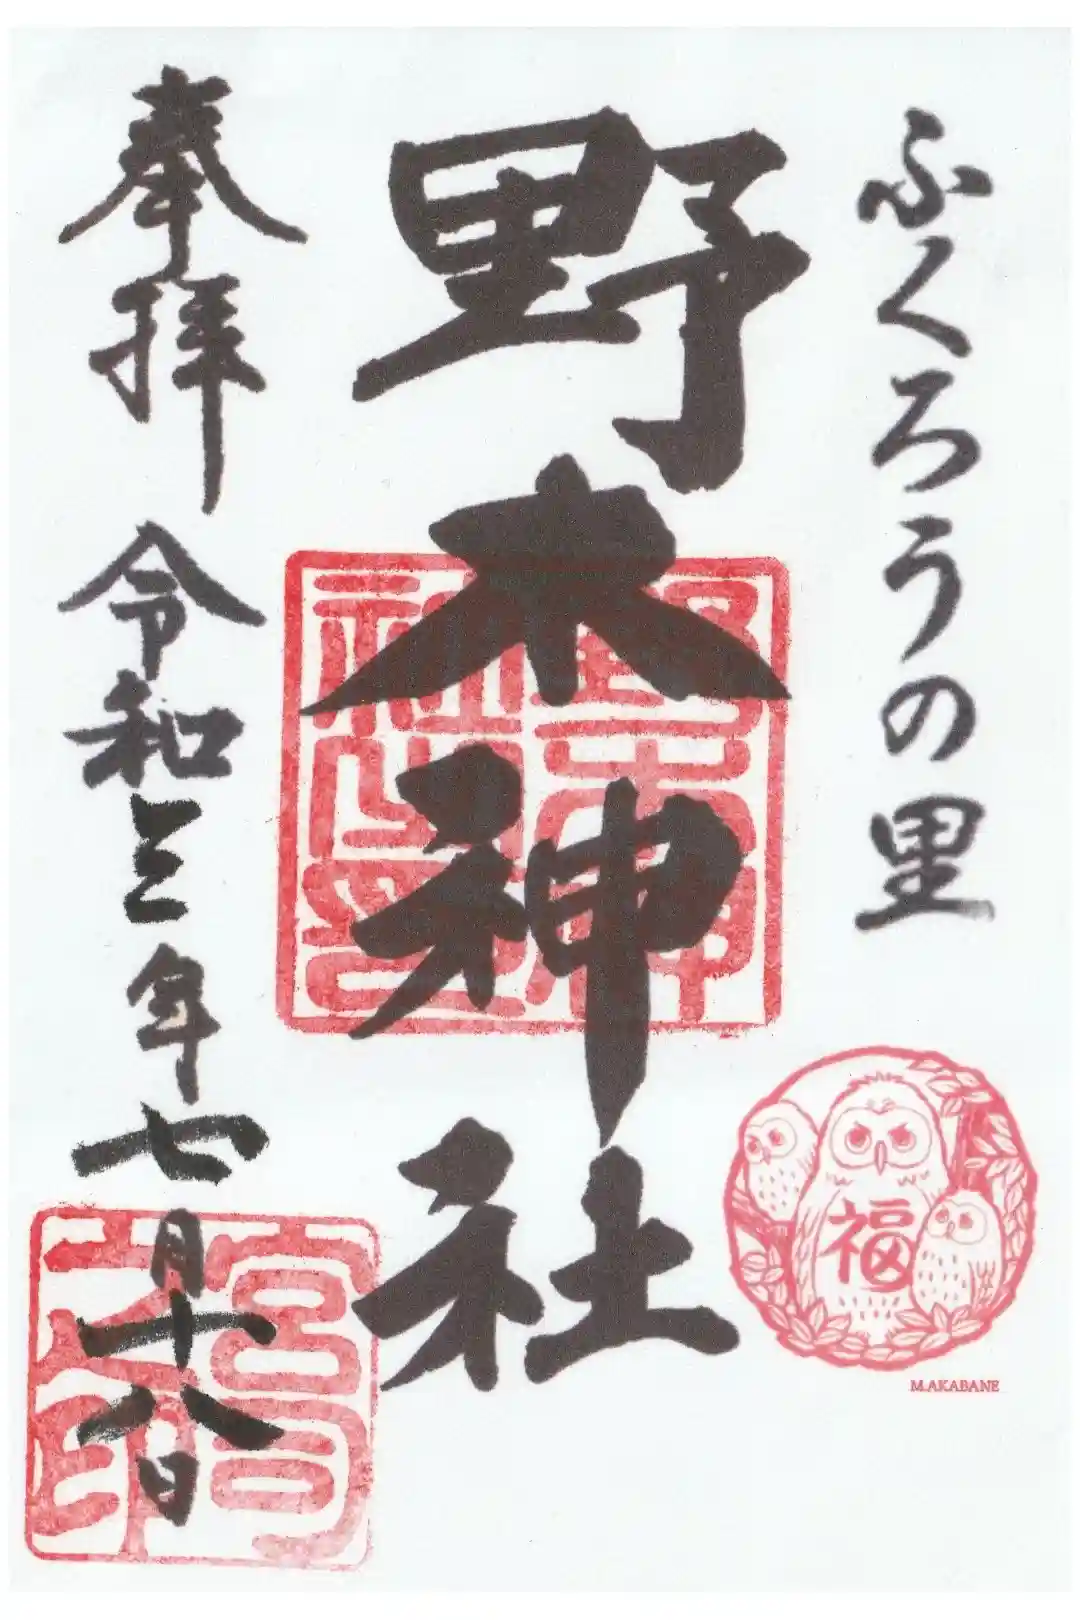 ふくろうの里
野木神社
奉拝 令和三年七月十八日
野木神社之印
福
M.AKABANE
宮司之印